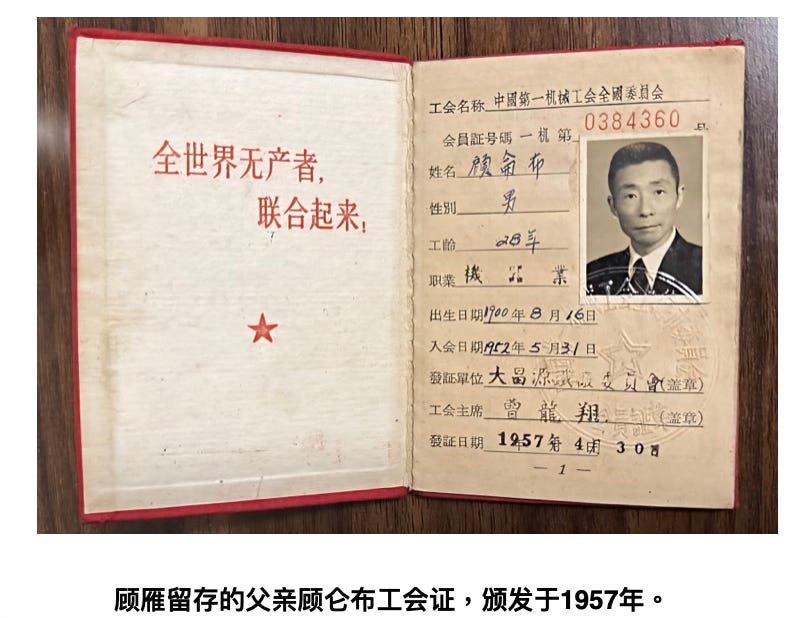 全世界无产者，
联合起来！
工会名称 中國第一机械工会全國委員会
会員証号碼 一机 第 0384360 号
姓名 顾侖布
性别 男
工齡 28年
职業 機器業
出生日期 1900年8月16日
入会日期 1952年5月31日
發証單位 大昌源鐵廠委員會(盖章)
工会主席 曾龍翔 (盖章)
發証日期 1957年4月30日
— 1 —
顾雁留存的父亲顾仑布工会证，颁发于1957年。